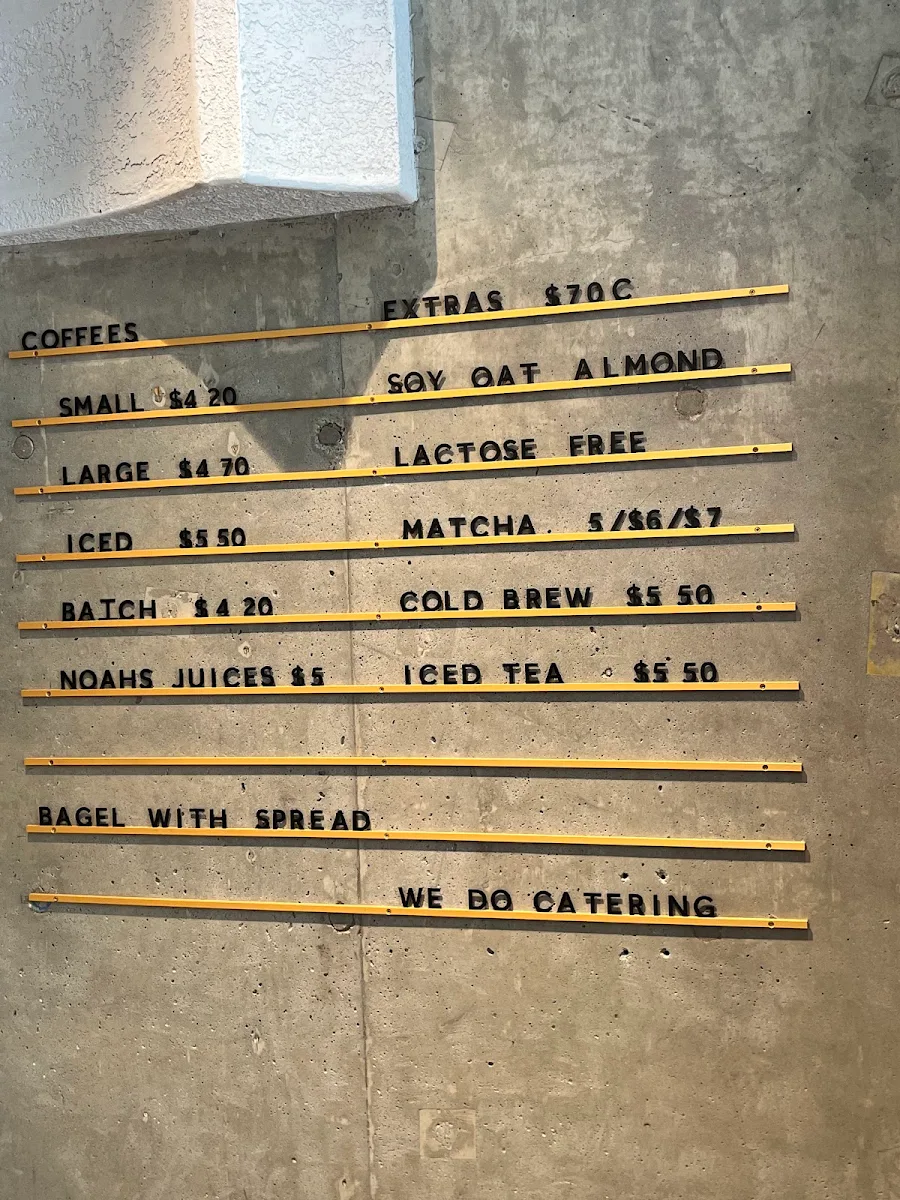 COFFEES
SMALL $4 20
LARGE $4 70
ICED $5 50
BATCH $4 20
NOAHS JUICES $5
BAGEL WITH SPREAD
EXTRAS $70C
SOY OAT ALMOND
LACTOSE FREE
MATCHA. 5/$6/$7
COLD BREW $5 50
ICED TEA $5 50
WE DO CATERING